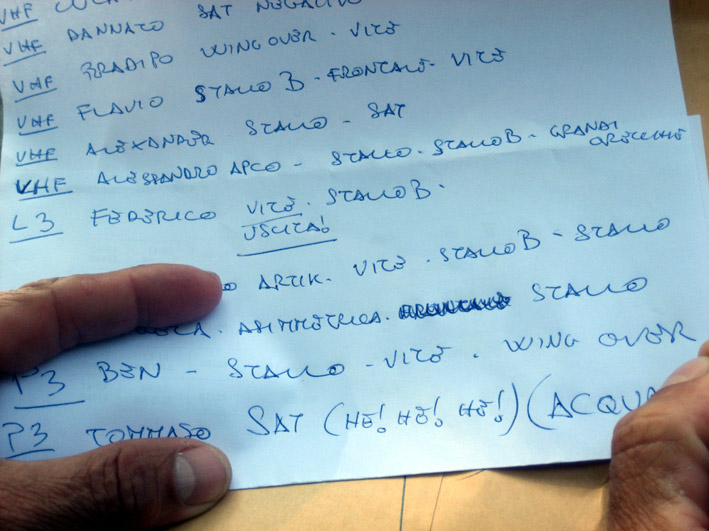 VHF
VHF DANNATO SAT NEGATIVO
VHF BRADIPO WING OVER - VITE
VHF FLAVIO STALLO B - FRONTALE - VITE
VHF ALEXANDER STALLO - SAT
VHF ALESSANDRO APCO - STALLO - STALLO B - GRANDI ORECCHIE
L3 FEDERICO VITE - STALLO B -
USCITA!
ARTIK - VITE - STALLO B - STALLO
ASIMMETRICA - STALLO
P3 BEN - STALLO - VITE - WING OVER
P3 TOMMASO SAT (HE! HE! HE!) (ACQUA